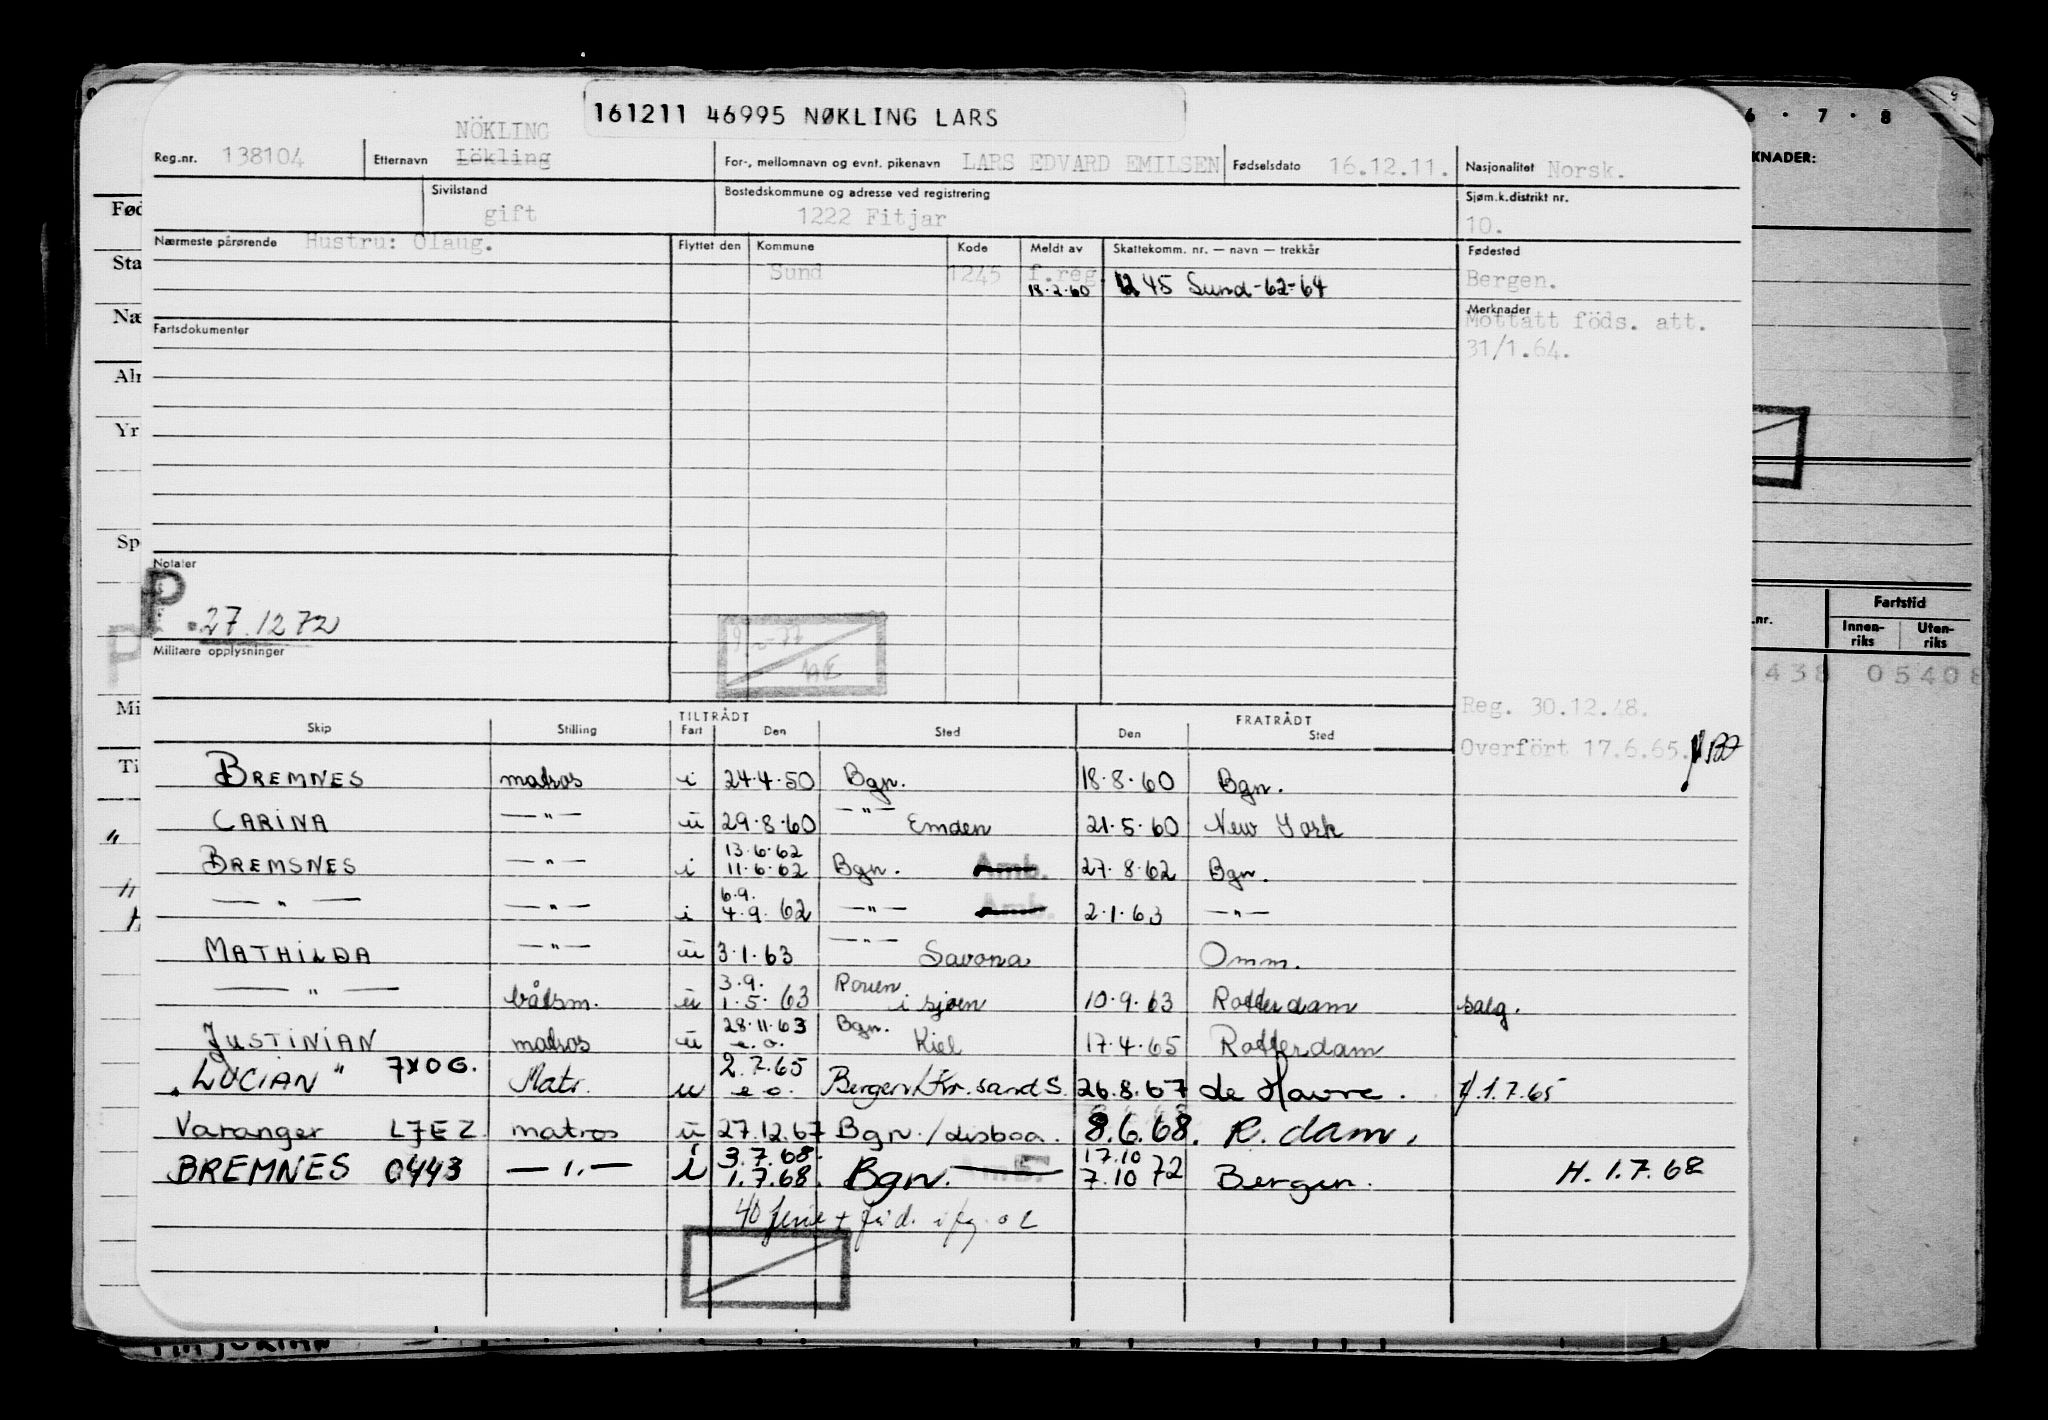 161211 46995 NØKLING LARS
NÖKLING
Reg.nr. 138104 Etternavn Lökling For-, mellomnavn og evnt. pikenavn LARS EDVARD EMILSEN Fødselsdato 16.12.11. Nasjonalitet Norsk.
Sivilstand gift Bostedskommune og adresse ved registrering 1222 Fitjar Sjøm.k.distrikt nr. 10.
Nærmeste pårørende Hustru: Olaug. Flyttet den Kommune Kode Meldt av Skattekomm. nr. — navn — trekkår Fødested
Sund 1245 f.reg 18.2.60 1245 Sund-62-64 Bergen.
Fartsdokumenter Merknader
Mottatt föds. att.
31/1.64.
Notater
P. 27.12 72
Militære opplysninger
Reg. 30.12.48.
Overfört 17.6.65.
TILTRÅDT FRATRÅDT
Skip Stilling Fart Den Sted Den Sted
BREMNES matros i 24.4.50 Bgn. 18.8.60 Bgn.
CARINA —"— u 29.8.60 —"— Emden 21.5.60 New York
BREMSNES —"— i 13.6.62 11.6.62 Bgn. Amb. 27.8.62 Bgn.
—"— —"— i 6.9. 4.9.62 —"— Amb. 2.1.63 —"—
MATHILDA —"— u 3.1.63 —"— Savona Omm.
—"— båtsm. u 3.9. 1.5.63 Rouen i sjøen 10.9.63 Rotterdam salg.
JUSTINIAN matros u 28.11.63 e.o. Bgn. Kiel 17.4.65 Rotterdam
"LUCIAN" 7XOG. Matr. u 2.7.65 e.o. Bergen/Kr.sand S. 26.8.67 de Havre. 1.7.65
Varanger LJEZ matros u 27.12.67 Bgn./Lisboa. 8.6.68. R.dam.
BREMNES 0443 —"— i 3.7.68. 1.7.68. Bgn. 17.10 7.10 72 Bergen. H. 1.7.68
40 ferie +
6 . 7 . 8
KNADER:
Fød
Sta
Næ
Yr
Sp
Mi
Ti
.nr. Fartstid
Innen-riks Uten-riks
438 05408